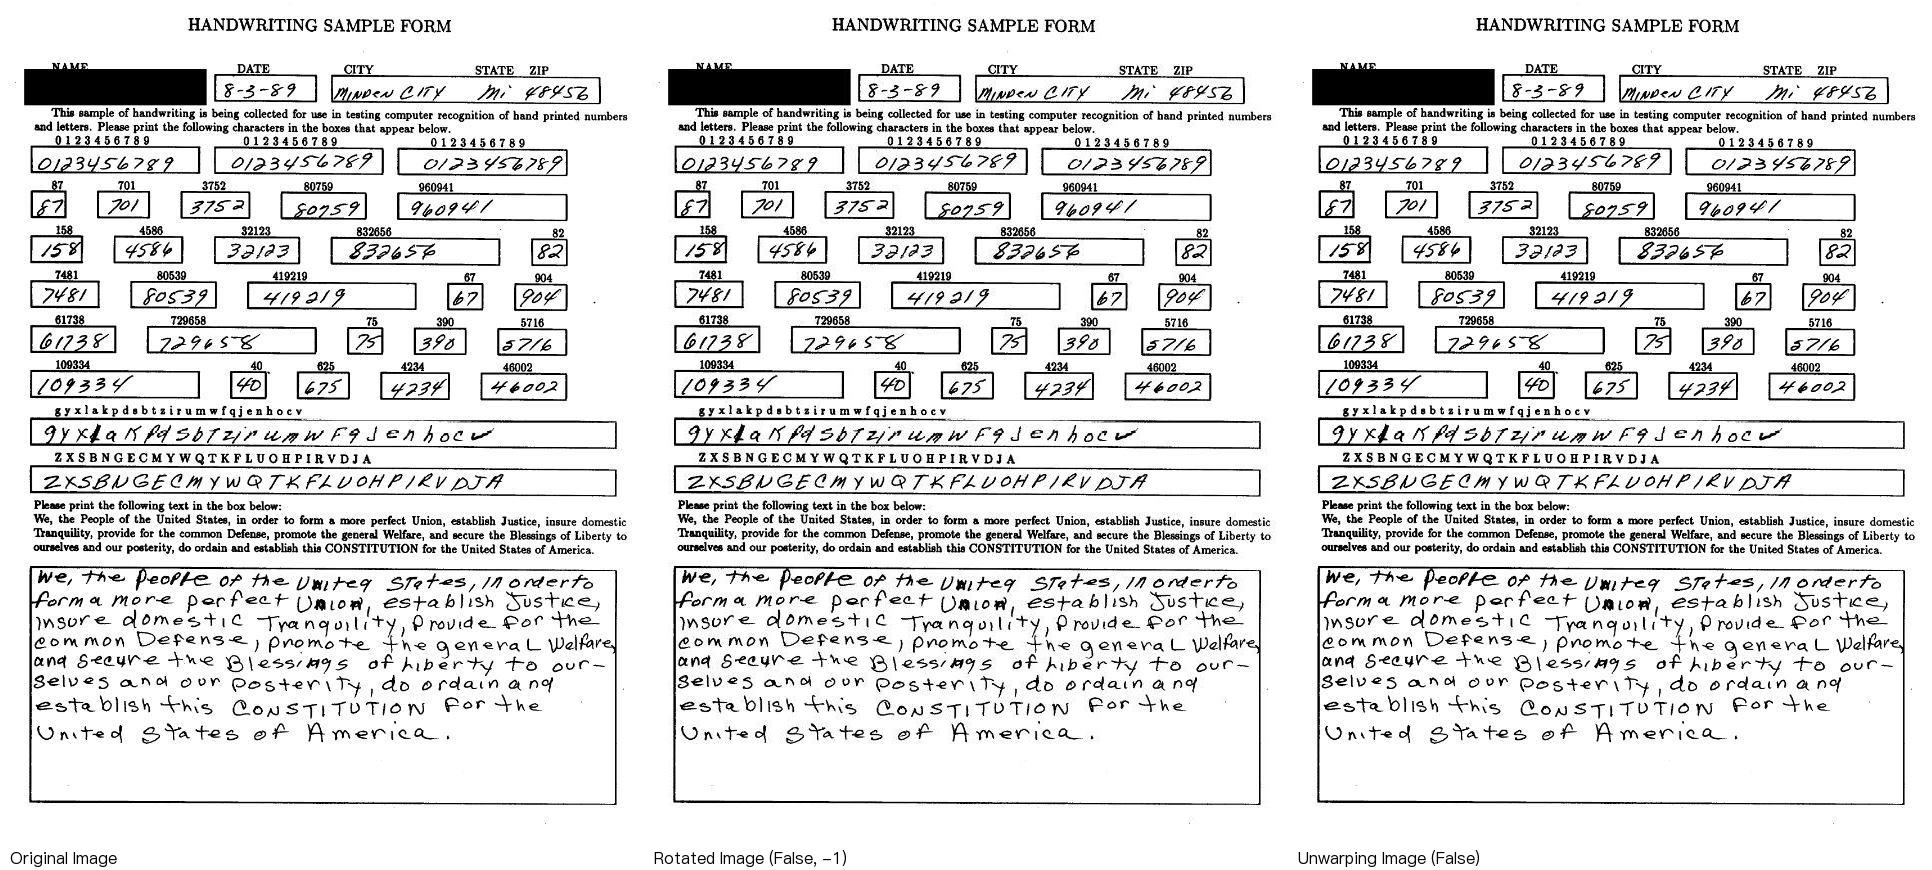 HANDWRITING SAMPLE FORM
NAME DATE CITY STATE ZIP
8-3-89 MINDEN CITY Mi 48456
This sample of handwriting is being collected for use in testing computer recognition of hand printed numbers
and letters. Please print the following characters in the boxes that appear below.
0 1 2 3 4 5 6 7 8 9 0 1 2 3 4 5 6 7 8 9 0 1 2 3 4 5 6 7 8 9
0123456789 0123456789 0123456789
87 701 3752 80759 960941
87 701 3752 80759 960941
158 4586 32123 832656 82
158 4586 32123 832656 82
7481 80539 419219 67 904
7481 80539 419219 67 904
61738 729658 75 390 5716
61738 729658 75 390 5716
109334 40 625 4234 46002
109334 40 675 4234 46002
g y x l a k p d s b t z i r u m w f q j e n h o c v
g y x l a K p d S b T z i r u m w F q J e n h o c v
Z X S B N G E C M Y W Q T K F L U O H P I R V D J A
Z X S B N G E C M Y W Q T K F L U O H P I R V D J A
Please print the following text in the box below:
We, the People of the United States, in order to form a more perfect Union, establish Justice, insure domestic
Tranquility, provide for the common Defense, promote the general Welfare, and secure the Blessings of Liberty to
ourselves and our posterity, do ordain and establish this CONSTITUTION for the United States of America.
We, the People of the United States, in order to
form a more perfect Union, establish Justice,
insure domestic Tranquility, Provide for the
common Defense, promote the general Welfare,
and secure the Blessings of Liberty to our-
selves and our posterity, do ordain and
establish this CONSTITUTION for the
United States of America.
Original Image
HANDWRITING SAMPLE FORM
NAME DATE CITY STATE ZIP
8-3-89 MINDEN CITY Mi 48456
This sample of handwriting is being collected for use in testing computer recognition of hand printed numbers
and letters. Please print the following characters in the boxes that appear below.
0 1 2 3 4 5 6 7 8 9 0 1 2 3 4 5 6 7 8 9 0 1 2 3 4 5 6 7 8 9
0123456789 0123456789 0123456789
87 701 3752 80759 960941
87 701 3752 80759 960941
158 4586 32123 832656 82
158 4586 32123 832656 82
7481 80539 419219 67 904
7481 80539 419219 67 904
61738 729658 75 390 5716
61738 729658 75 390 5716
109334 40 625 4234 46002
109334 40 675 4234 46002
g y x l a k p d s b t z i r u m w f q j e n h o c v
g y x l a K p d S b T z i r u m w F q J e n h o c v
Z X S B N G E C M Y W Q T K F L U O H P I R V D J A
Z X S B N G E C M Y W Q T K F L U O H P I R V D J A
Please print the following text in the box below:
We, the People of the United States, in order to form a more perfect Union, establish Justice, insure domestic
Tranquility, provide for the common Defense, promote the general Welfare, and secure the Blessings of Liberty to
ourselves and our posterity, do ordain and establish this CONSTITUTION for the United States of America.
We, the People of the United States, in order to
form a more perfect Union, establish Justice,
insure domestic Tranquility, Provide for the
common Defense, promote the general Welfare,
and secure the Blessings of Liberty to our-
selves and our posterity, do ordain and
establish this CONSTITUTION for the
United States of America.
Rotated Image (False, -1)
HANDWRITING SAMPLE FORM
NAME DATE CITY STATE ZIP
8-3-89 MINDEN CITY Mi 48456
This sample of handwriting is being collected for use in testing computer recognition of hand printed numbers
and letters. Please print the following characters in the boxes that appear below.
0 1 2 3 4 5 6 7 8 9 0 1 2 3 4 5 6 7 8 9 0 1 2 3 4 5 6 7 8 9
0123456789 0123456789 0123456789
87 701 3752 80759 960941
87 701 3752 80759 960941
158 4586 32123 832656 82
158 4586 32123 832656 82
7481 80539 419219 67 904
7481 80539 419219 67 904
61738 729658 75 390 5716
61738 729658 75 390 5716
109334 40 625 4234 46002
109334 40 675 4234 46002
g y x l a k p d s b t z i r u m w f q j e n h o c v
g y x l a K p d S b T z i r u m w F q J e n h o c v
Z X S B N G E C M Y W Q T K F L U O H P I R V D J A
Z X S B N G E C M Y W Q T K F L U O H P I R V D J A
Please print the following text in the box below:
We, the People of the United States, in order to form a more perfect Union, establish Justice, insure domestic
Tranquility, provide for the common Defense, promote the general Welfare, and secure the Blessings of Liberty to
ourselves and our posterity, do ordain and establish this CONSTITUTION for the United States of America.
We, the People of the United States, in order to
form a more perfect Union, establish Justice,
insure domestic Tranquility, Provide for the
common Defense, promote the general Welfare,
and secure the Blessings of Liberty to our-
selves and our posterity, do ordain and
establish this CONSTITUTION for the
United States of America.
Unwarping Image (False)